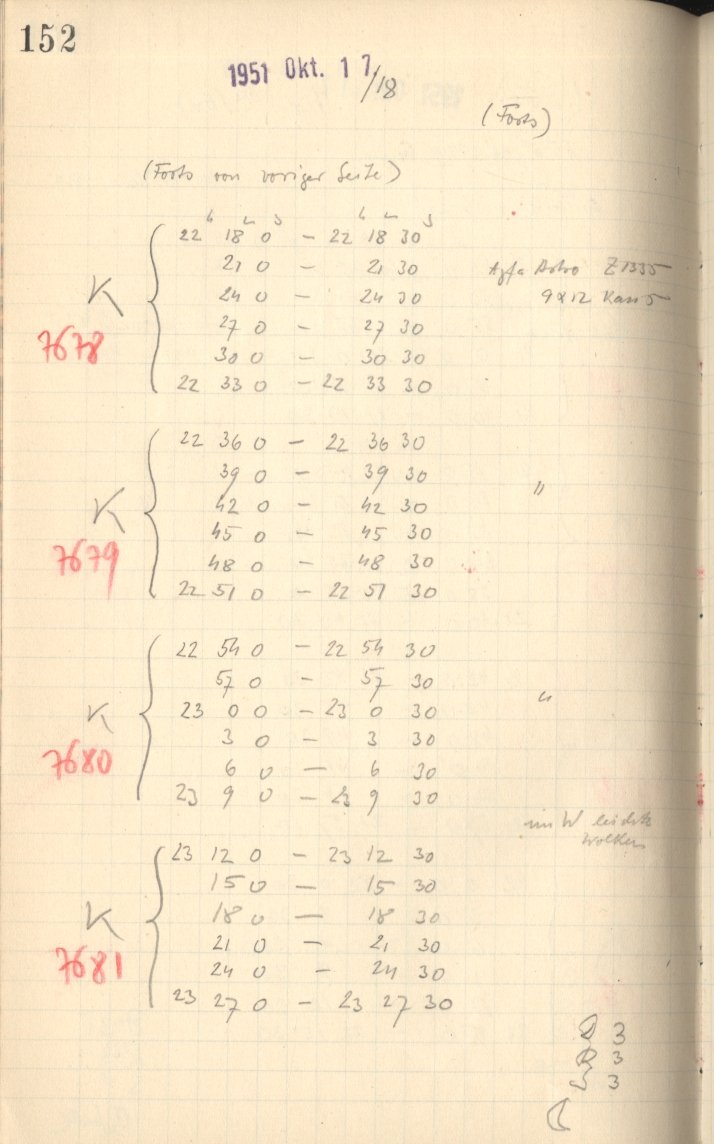 152
1951 Okt. 17/18
(Forts)
(Forts von voriger Seite)
h m s h m s
22 18 0 – 22 18 30
21 0 – 21 30 Agfa Astro Z1335
K 24 0 – 24 30 9x12 Kass 5
7678 27 0 – 27 30
30 0 – 30 30
22 33 0 – 22 33 30
22 36 0 – 22 36 30
39 0 – 39 30 "
K 42 0 – 42 30
45 0 – 45 30
7679 48 0 – 48 30
22 51 0 – 22 51 30
22 54 0 – 22 54 30
57 0 – 57 30 "
K 23 0 0 – 23 0 30
3 0 – 3 30
7680 6 0 – 6 30
23 9 0 – 23 9 30
im W leichte
Wolken
23 12 0 – 23 12 30
15 0 – 15 30
K 18 0 – 18 30
21 0 – 21 30
7681 24 0 – 24 30
23 27 0 – 23 27 30
D 3
R 3
S 3